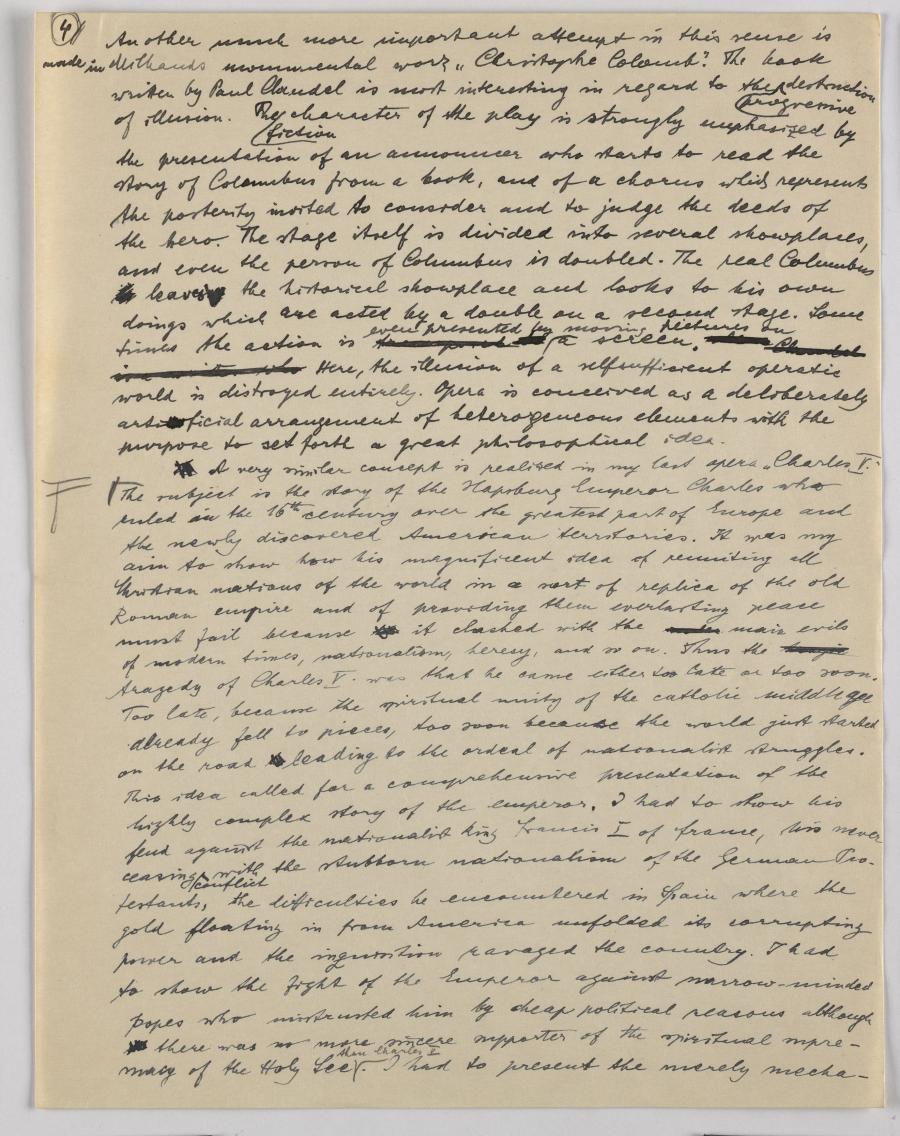 4
Another much more important attempt in this sense is
made in Milhauds monumental work „Christophe Colomb". The book
written by Paul Claudel is most interesting in regard to the progressive destruction
of illusion. The fiction character of the play is strongly emphasized by
the presentation of an announcer who starts to read the
story of Columbus from a book, and of a chorus which represents
the posterity invited to consider and to judge the deeds of
the hero. The stage itself is divided into several showplaces,
and even the person of Columbus is doubled. The real Columbus
leaves the historical showplace and looks to his own
doings which are acted by a double on a second stage. Some
times the action is even presented by moving pictures on a screen.
Here, the illusion of a selfsufficient operatic
world is distroyed entirely. Opera is conceived as a deliberately
artificial arrangement of heterogeneous elements with the
purpose to set forth a great philosophical idea.
A very similar concept is realized in my last opera „Charles V."
The subject is the story of the Hapsburg Emperor Charles who
ruled in the 16th century over the greatest part of Europe and
the newly discovered American territories. It was my
aim to show how his magnificent idea of reuniting all
Christian nations of the world in a sort of replica of the old
Roman empire and of providing them everlasting peace
must fail because it clashed with the main evils
of modern times, nationalism, heresy, and so on. Thus the
tragedy of Charles V. was that he came either too late or too soon.
Too late, because the spiritual unity of the catholic middle age
already fell to pieces, too soon because the world just started
on the road leading to the ordeal of nationalist struggles.
This idea called for a comprehensive presentation of the
highly complex story of the emperor. I had to show his
feud against the nationalist king Francis I of France, his never
ceasing conflict with the stubborn nationalism of the German Pro-
testants, the difficulties he encountered in Spain where the
gold floating in from America unfolded its corrupting
power and the inquisition ravaged the country. I had
to show the fight of the Emperor against narrow-minded
popes who mistrusted him by cheap political reasons although
there was no more sincere supporter of the spiritual supre-
macy of the Holy See than Charles V. I had to present the merely mecha-